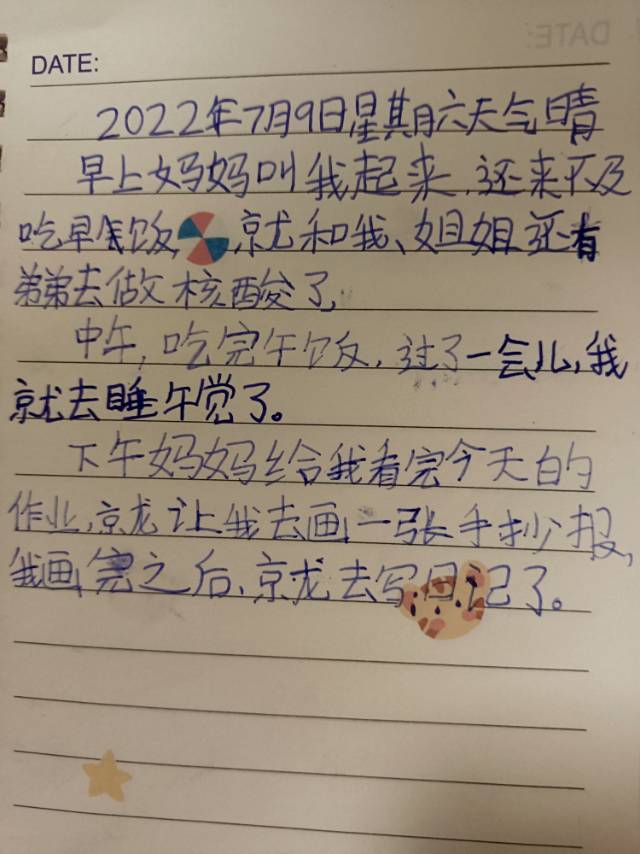 DATE:
2022年7月9日星期六天气晴
早上妈妈叫我起来,还来不及
吃早饭,就和我、姐姐还有
弟弟去做核酸了,
中午,吃完午饭,过了一会儿,我
就去睡午觉了。
下午妈妈给我看完今天的
作业,京龙让我去画一张手抄报,
我画完之后,京龙去写日记了。